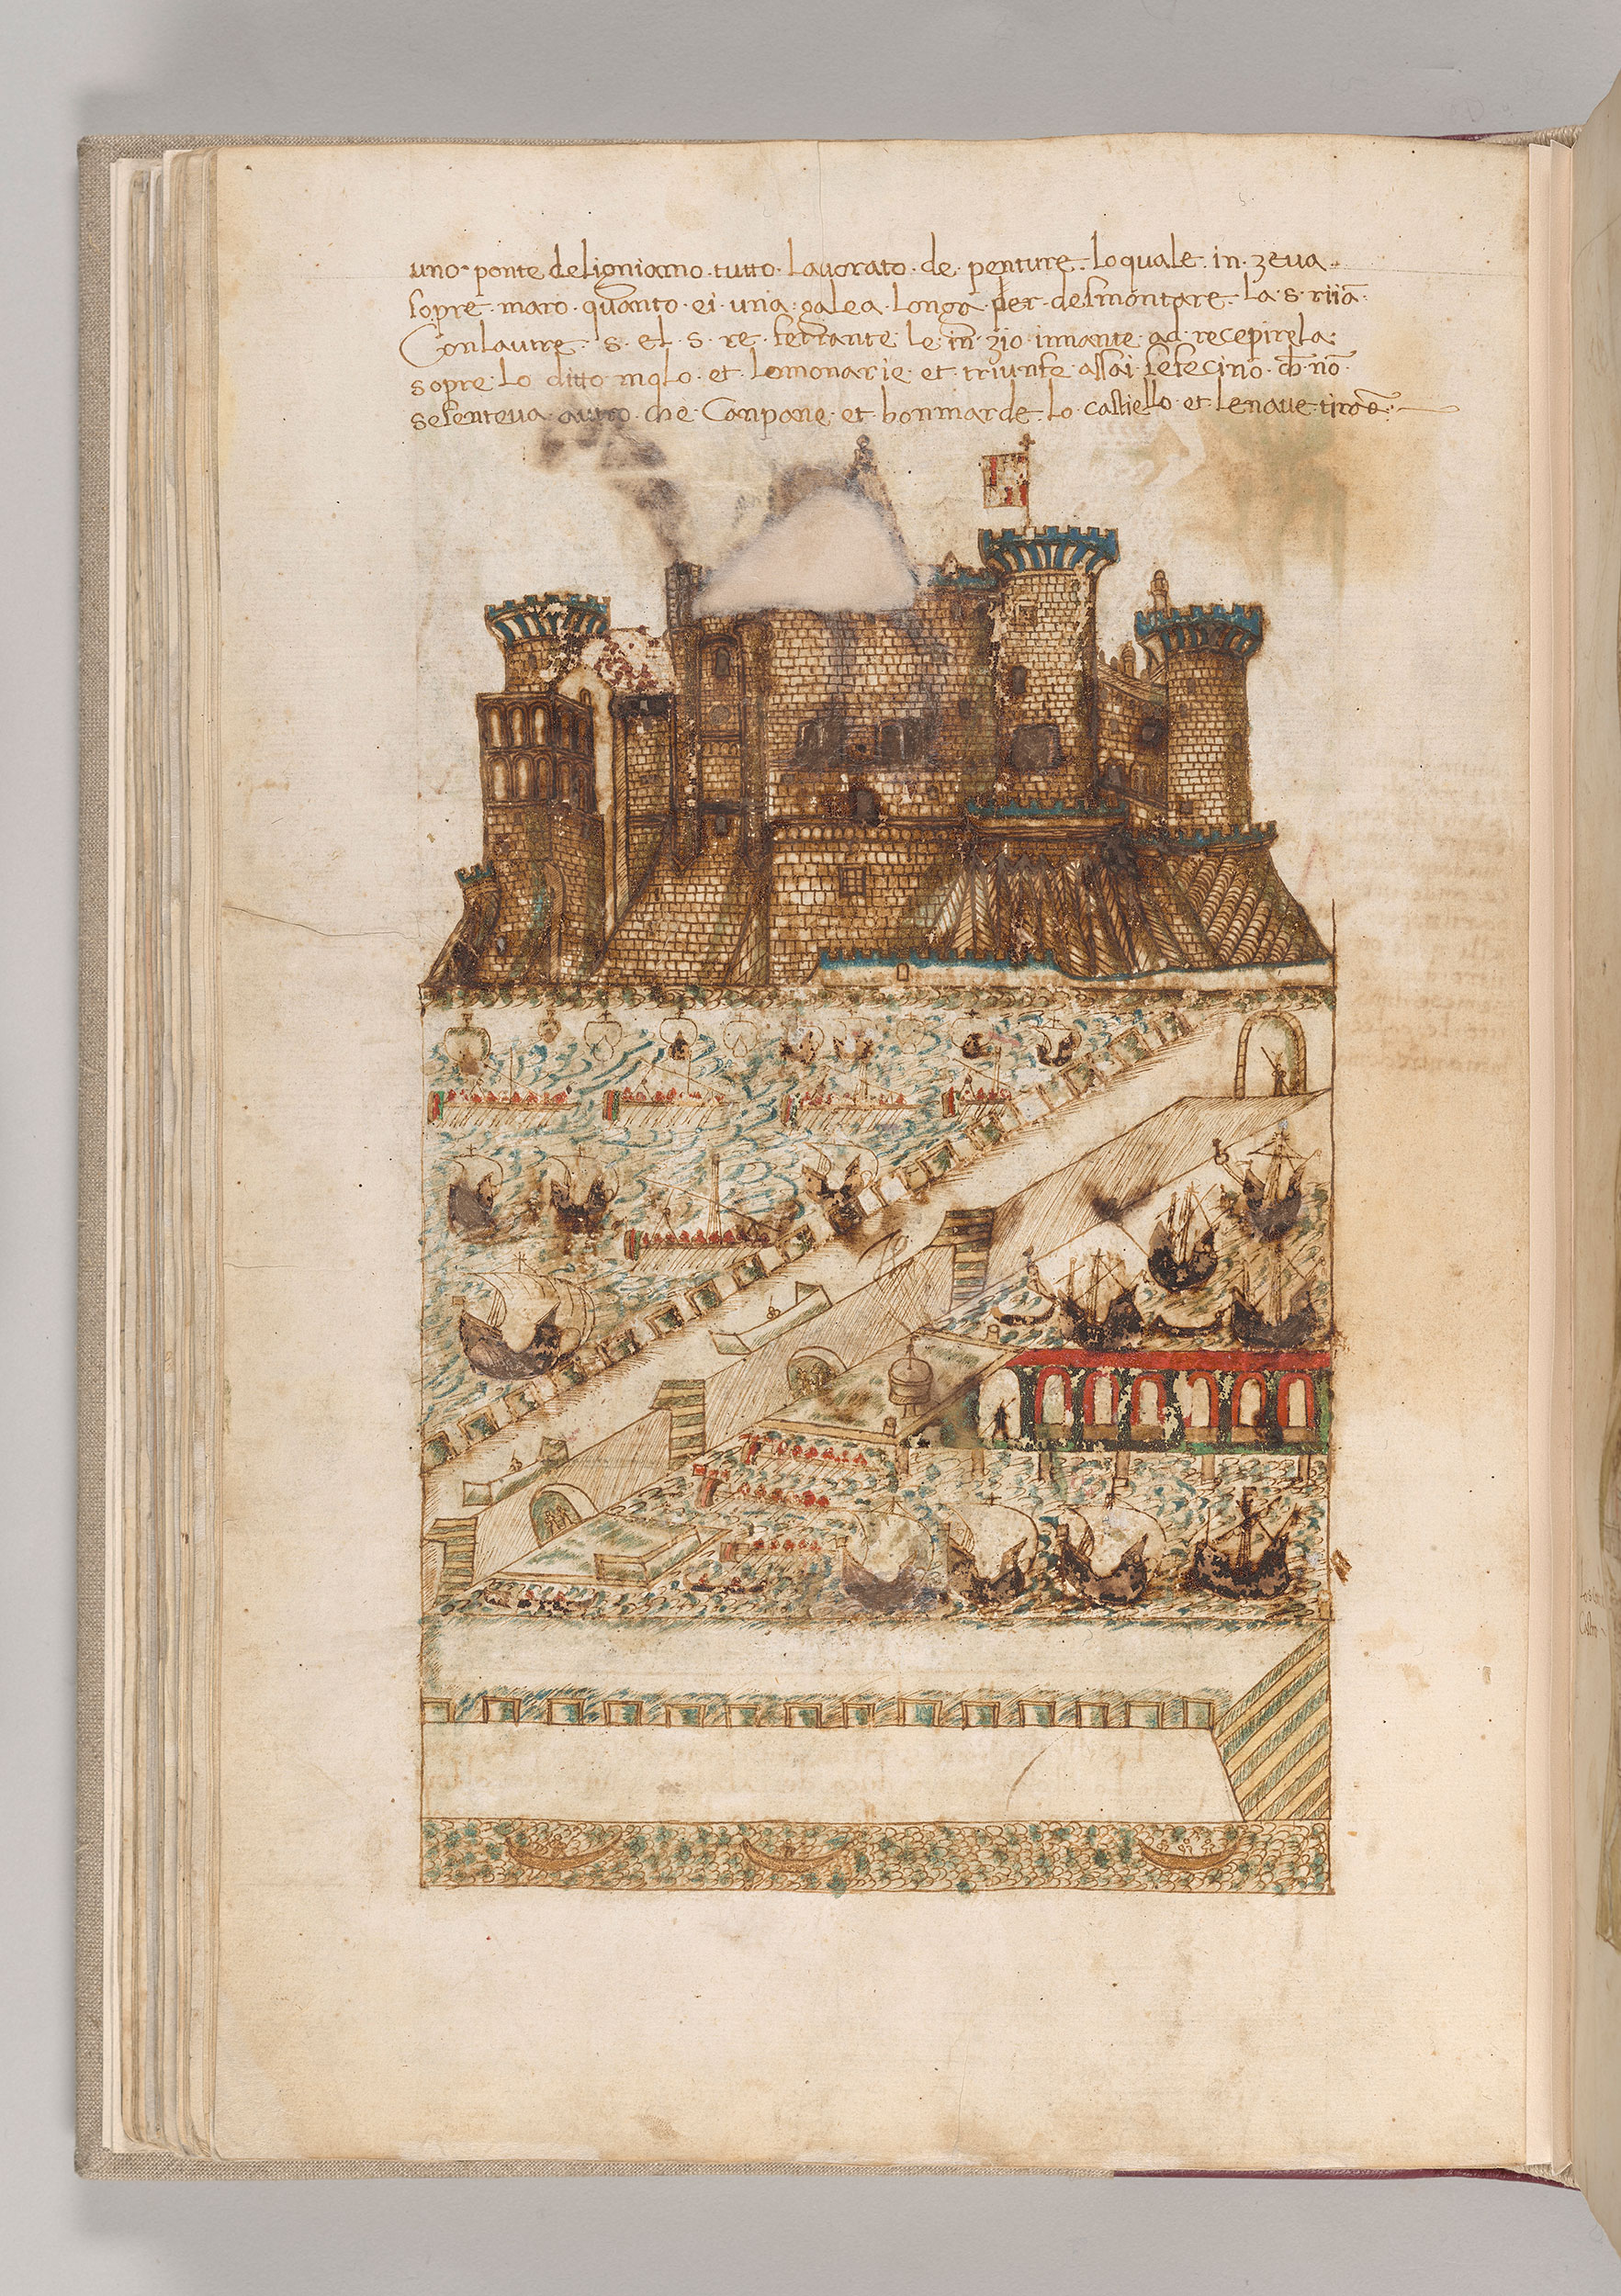 uno· ponte deligniamo· tutto· Lauorato· de· penture· loquale· in· zeua·
sopre· maro· quanto· ei· una· galea· Longa· per· desmontare· La· s· riia·
Conlautre· s· el· s· re· ferrante· le· in zio· innante· ad· recepirela:
sopre· Lo· ditto molo· et· Lomonarie· et· triunfe assai· sefecino· ch no·
sesenteua· autro· che· Canpane· et· bonmarde· Lo· castiello· et· Lenaue·